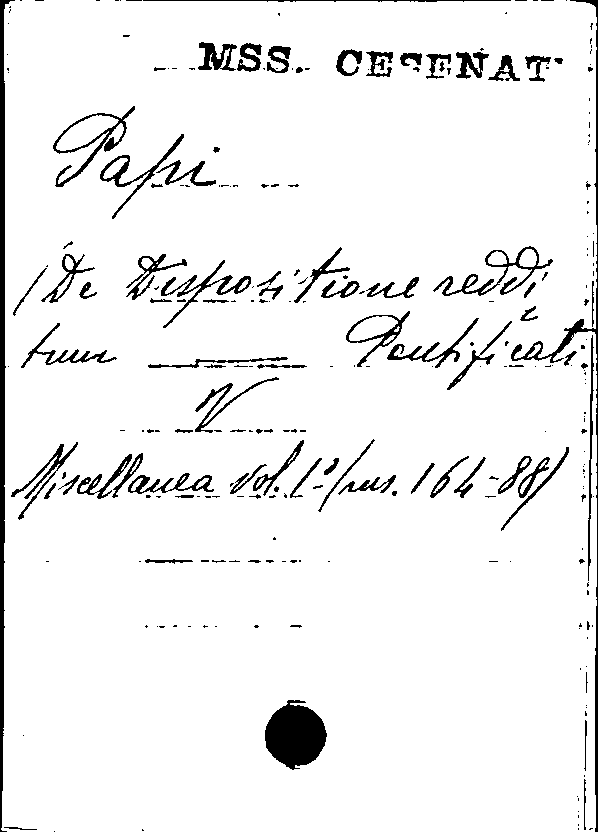 MSS. CESENAT
Papi
(De Dispositione reddi
tum — Pontificati
V
Miscellanea vol. 1º (ms. 164-88)